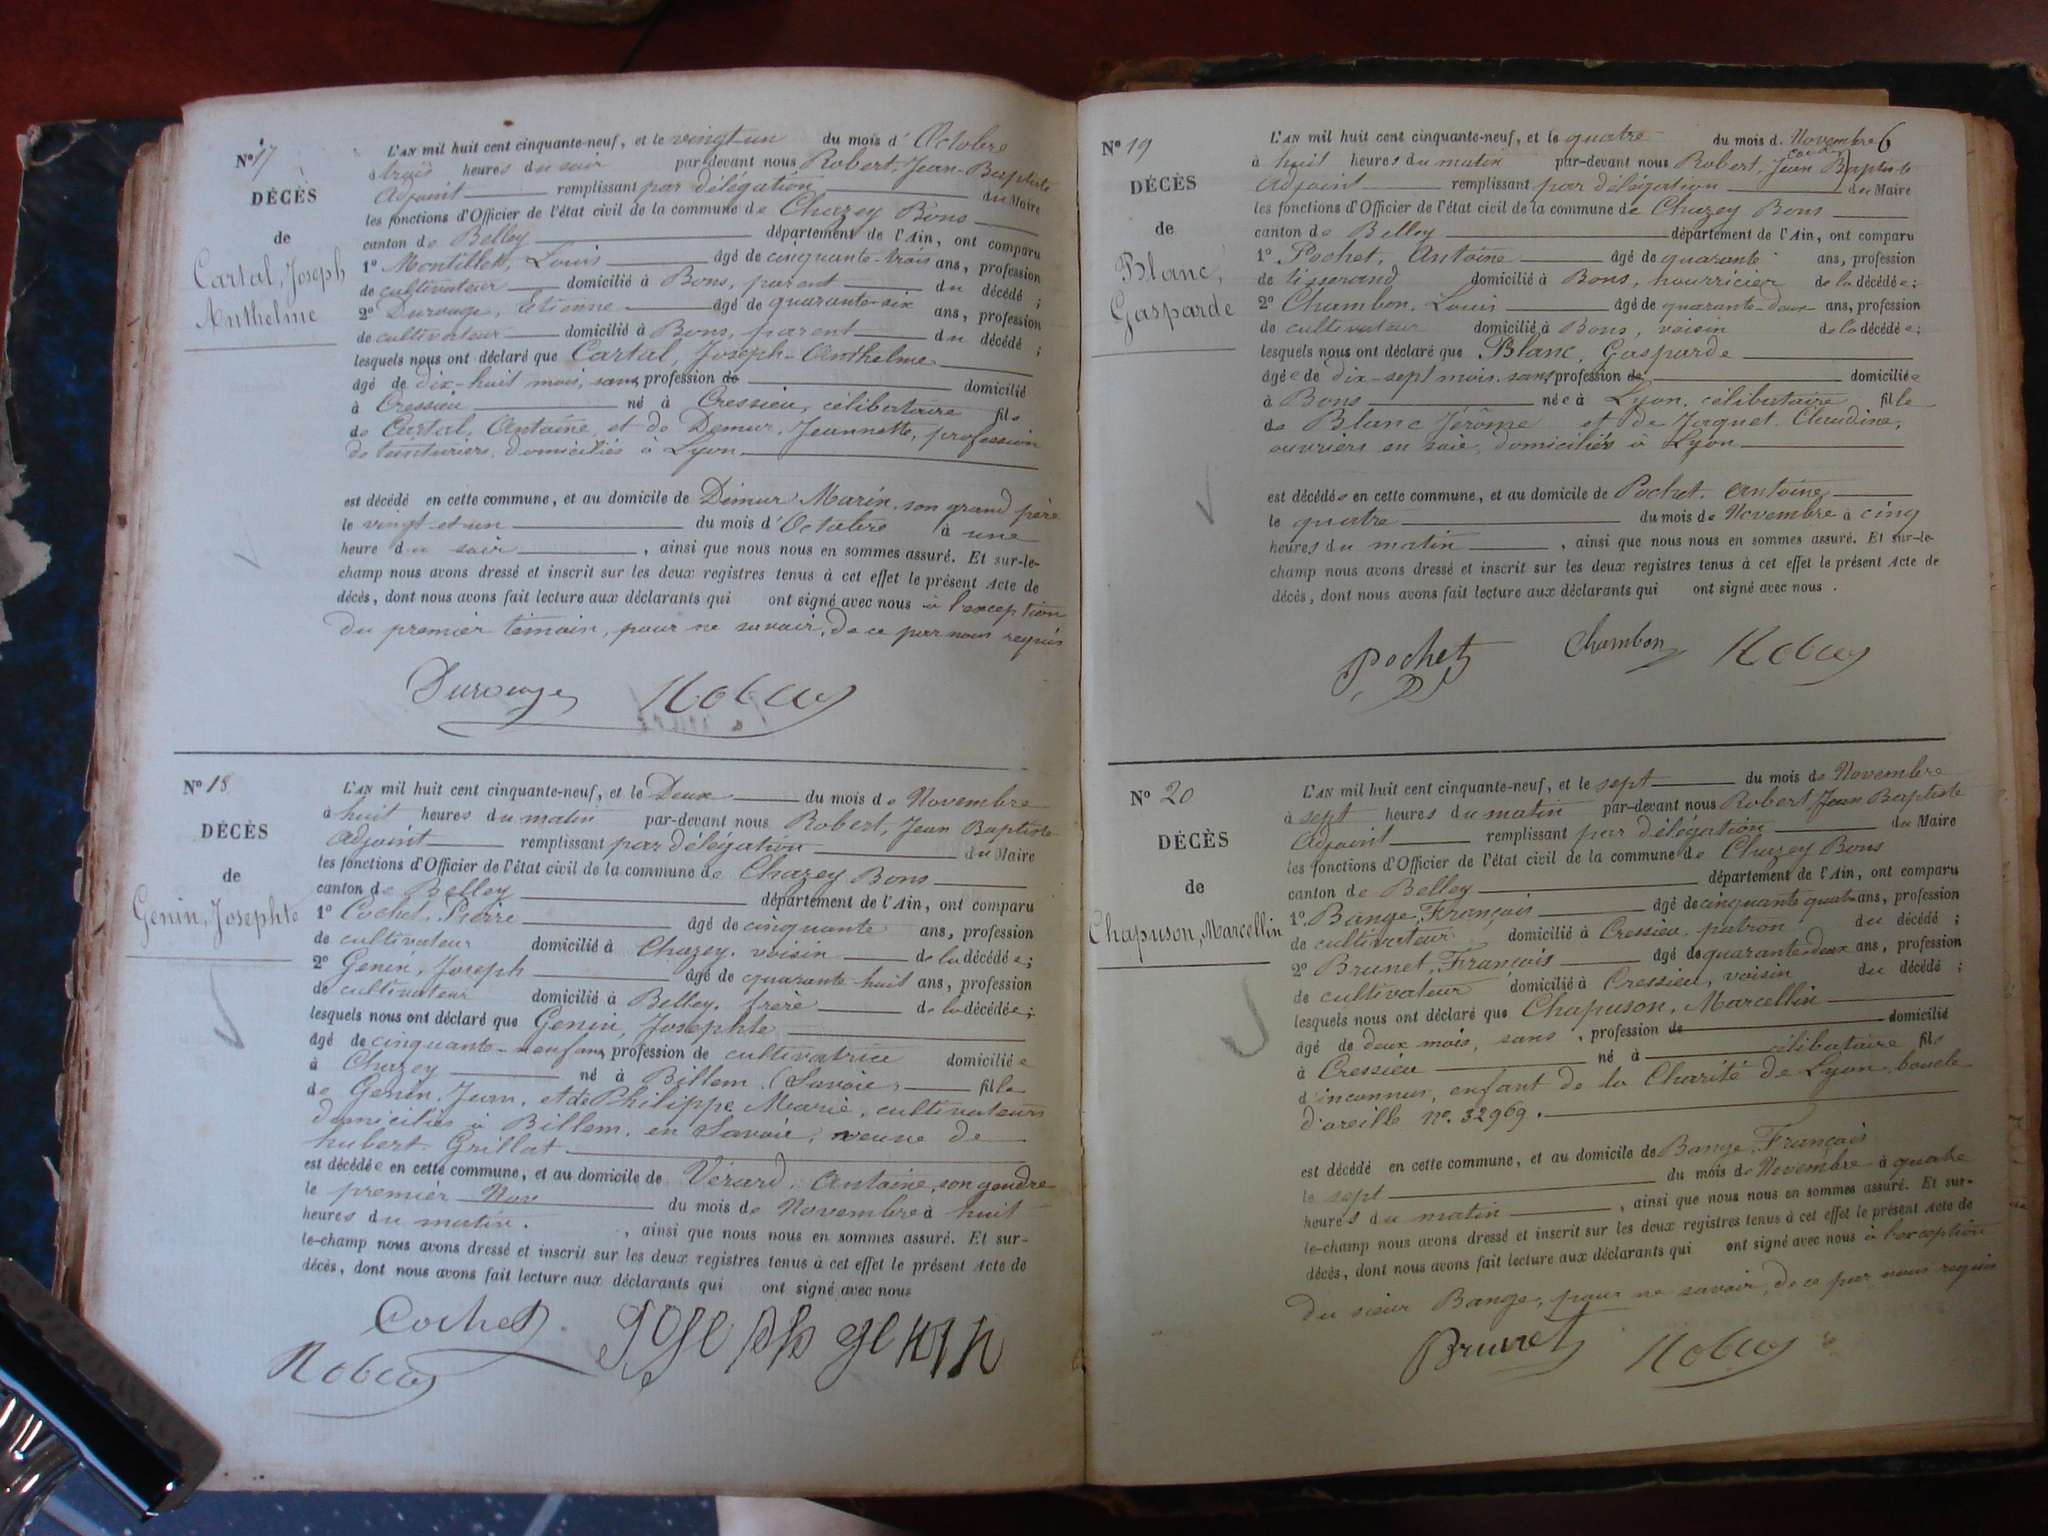 N° 17
DÉCÈS
de
Cartal, Joseph
Anthelme
L'AN mil huit cent cinquante-neuf, et le vingt-un du mois d'Octobre
à trois heures du soir par-devant nous Robert, Jean-Baptiste
Adjoint remplissant par délégation du Maire
les fonctions d'Officier de l'état civil de la commune de Chazey Bons
canton de Belley département de l'Ain, ont comparu
1° Montillet, Louis âgé de cinquante-trois ans, profession
de cultivateur domicilié à Bons, parent du décédé ;
2° Durouge, Etienne âgé de quarante-six ans, profession
de cultivateur domicilié à Bons, parent du décédé ;
lesquels nous ont déclaré que Cartal, Joseph-Anthelme
âgé de dix-huit mois, sans profession de domicilié
à Cressieu né à Cressieu, célibataire fils
de Cartal, Antoine, et de Demur, Jeannette, profession
de teinturiers, domiciliés à Lyon
est décédé en cette commune, et au domicile de Demur Marin, son grand père
le vingt-et-un du mois d'Octobre à une
heure du soir , ainsi que nous nous en sommes assuré. Et sur-le-
champ nous avons dressé et inscrit sur les deux registres tenus à cet effet le présent Acte de
décès, dont nous avons fait lecture aux déclarants qui ont signé avec nous à l'exception
du premier témoin, pour ne savoir, de ce par nous requis
Durouge Robert
N° 18
DÉCÈS
de
Genin, Josephte
L'AN mil huit cent cinquante-neuf, et le Deux du mois de Novembre
à huit heures du matin par-devant nous Robert, Jean Baptiste
Adjoint remplissant par délégation du Maire
les fonctions d'Officier de l'état civil de la commune de Chazey Bons
canton de Belley département de l'Ain, ont comparu
1° Cochet, Pierre âgé de cinquante ans, profession
de cultivateur domicilié à Chazey, voisin de la décédée ;
2° Genin, Joseph âgé de quarante-huit ans, profession
de cultivateur domicilié à Belley, frère de la décédée ;
lesquels nous ont déclaré que Genin, Josephte
âgé de cinquante-neuf ans, profession de cultivatrice domiciliée
à Chazey né à Billem, (Savoie) fille
de Genin, Jean, et de Philippe Marie, cultivateurs
domiciliés à Billem, en Savoie, veuve de
hubert Grillat
est décédée en cette commune, et au domicile de Vérard, Antoine, son gendre
le premier Nov du mois de Novembre à huit
heures du matin. , ainsi que nous nous en sommes assuré. Et sur-
le-champ nous avons dressé et inscrit sur les deux registres tenus à cet effet le présent Acte de
décès, dont nous avons fait lecture aux déclarants qui ont signé avec nous
Cochet Joseph genin
Robert
6
N° 19
DÉCÈS
de
Blanc,
Gasparde
L'AN mil huit cent cinquante-neuf, et le quatre du mois d. Novembre
à huit heures du matin par-devant nous Robert, Jean Baptiste
Adjoint remplissant par délégation du Maire
les fonctions d'Officier de l'état civil de la commune de Chazey Bons
canton de Belley département de l'Ain, ont comparu
1° Pochet, Antoine âgé de quarante ans, profession
de tisserand domicilié à Bons, nourricier de la décédée ;
2° Chambon, Louis âgé de quarante-deux ans, profession
de cultivateur domicilié à Bons, voisin de la décédée ;
lesquels nous ont déclaré que Blanc, Gasparde
âgée de dix-sept mois, sans profession de domiciliée
à Bons née à Lyon, célibataire fille
de Blanc Jérôme et de Jaquet, Claudine,
ouvriers en soie, domiciliés à Lyon
est décédée en cette commune, et au domicile de Pochet, Antoine,
le quatre du mois de Novembre à cinq
heures du matin , ainsi que nous nous en sommes assuré. Et sur-le-
champ nous avons dressé et inscrit sur les deux registres tenus à cet effet le présent Acte de
décès, dont nous avons fait lecture aux déclarants qui ont signé avec nous .
Pochet Chambon Robert
N° 20
DÉCÈS
de
Chapuson, Marcellin
L'AN mil huit cent cinquante-neuf, et le sept du mois de Novembre
à sept heures du matin par-devant nous Robert Jean Baptiste
Adjoint remplissant par délégation du Maire
les fonctions d'Officier de l'état civil de la commune de Chazey Bons
canton de Belley département de l'Ain, ont comparu
1° Bange, François âgé de cinquante quatre ans, profession
de cultivateur domicilié à Cressieu, patron du décédé ;
2° Brunet, François âgé de quarante-deux ans, profession
de cultivateur domicilié à Cressieu, voisin du décédé ;
lesquels nous ont déclaré que Chapuson, Marcellin
âgé de deux mois, sans profession de domicilié
à Cressieu né à célibataire fils
d'inconnus, enfant de la Charité de Lyon, boucle
d'oreille n°. 32969.
est décédé en cette commune, et au domicile de Bange, François
le sept du mois de Novembre à quatre
heures du matin , ainsi que nous nous en sommes assuré. Et sur-
le-champ nous avons dressé et inscrit sur les deux registres tenus à cet effet le présent Acte de
décès, dont nous avons fait lecture aux déclarants qui ont signé avec nous à l'exception
du sieur Bange, pour ne savoir, de ce par nous requis
Brunet Robert